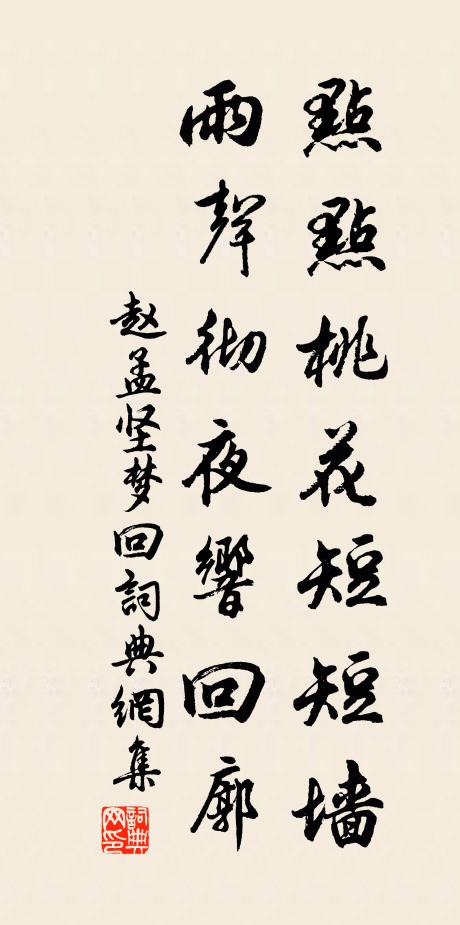 點點桃花短短墙
雨聲彻夜響回廓
赵孟坚梦回詞典網集
詞典網印